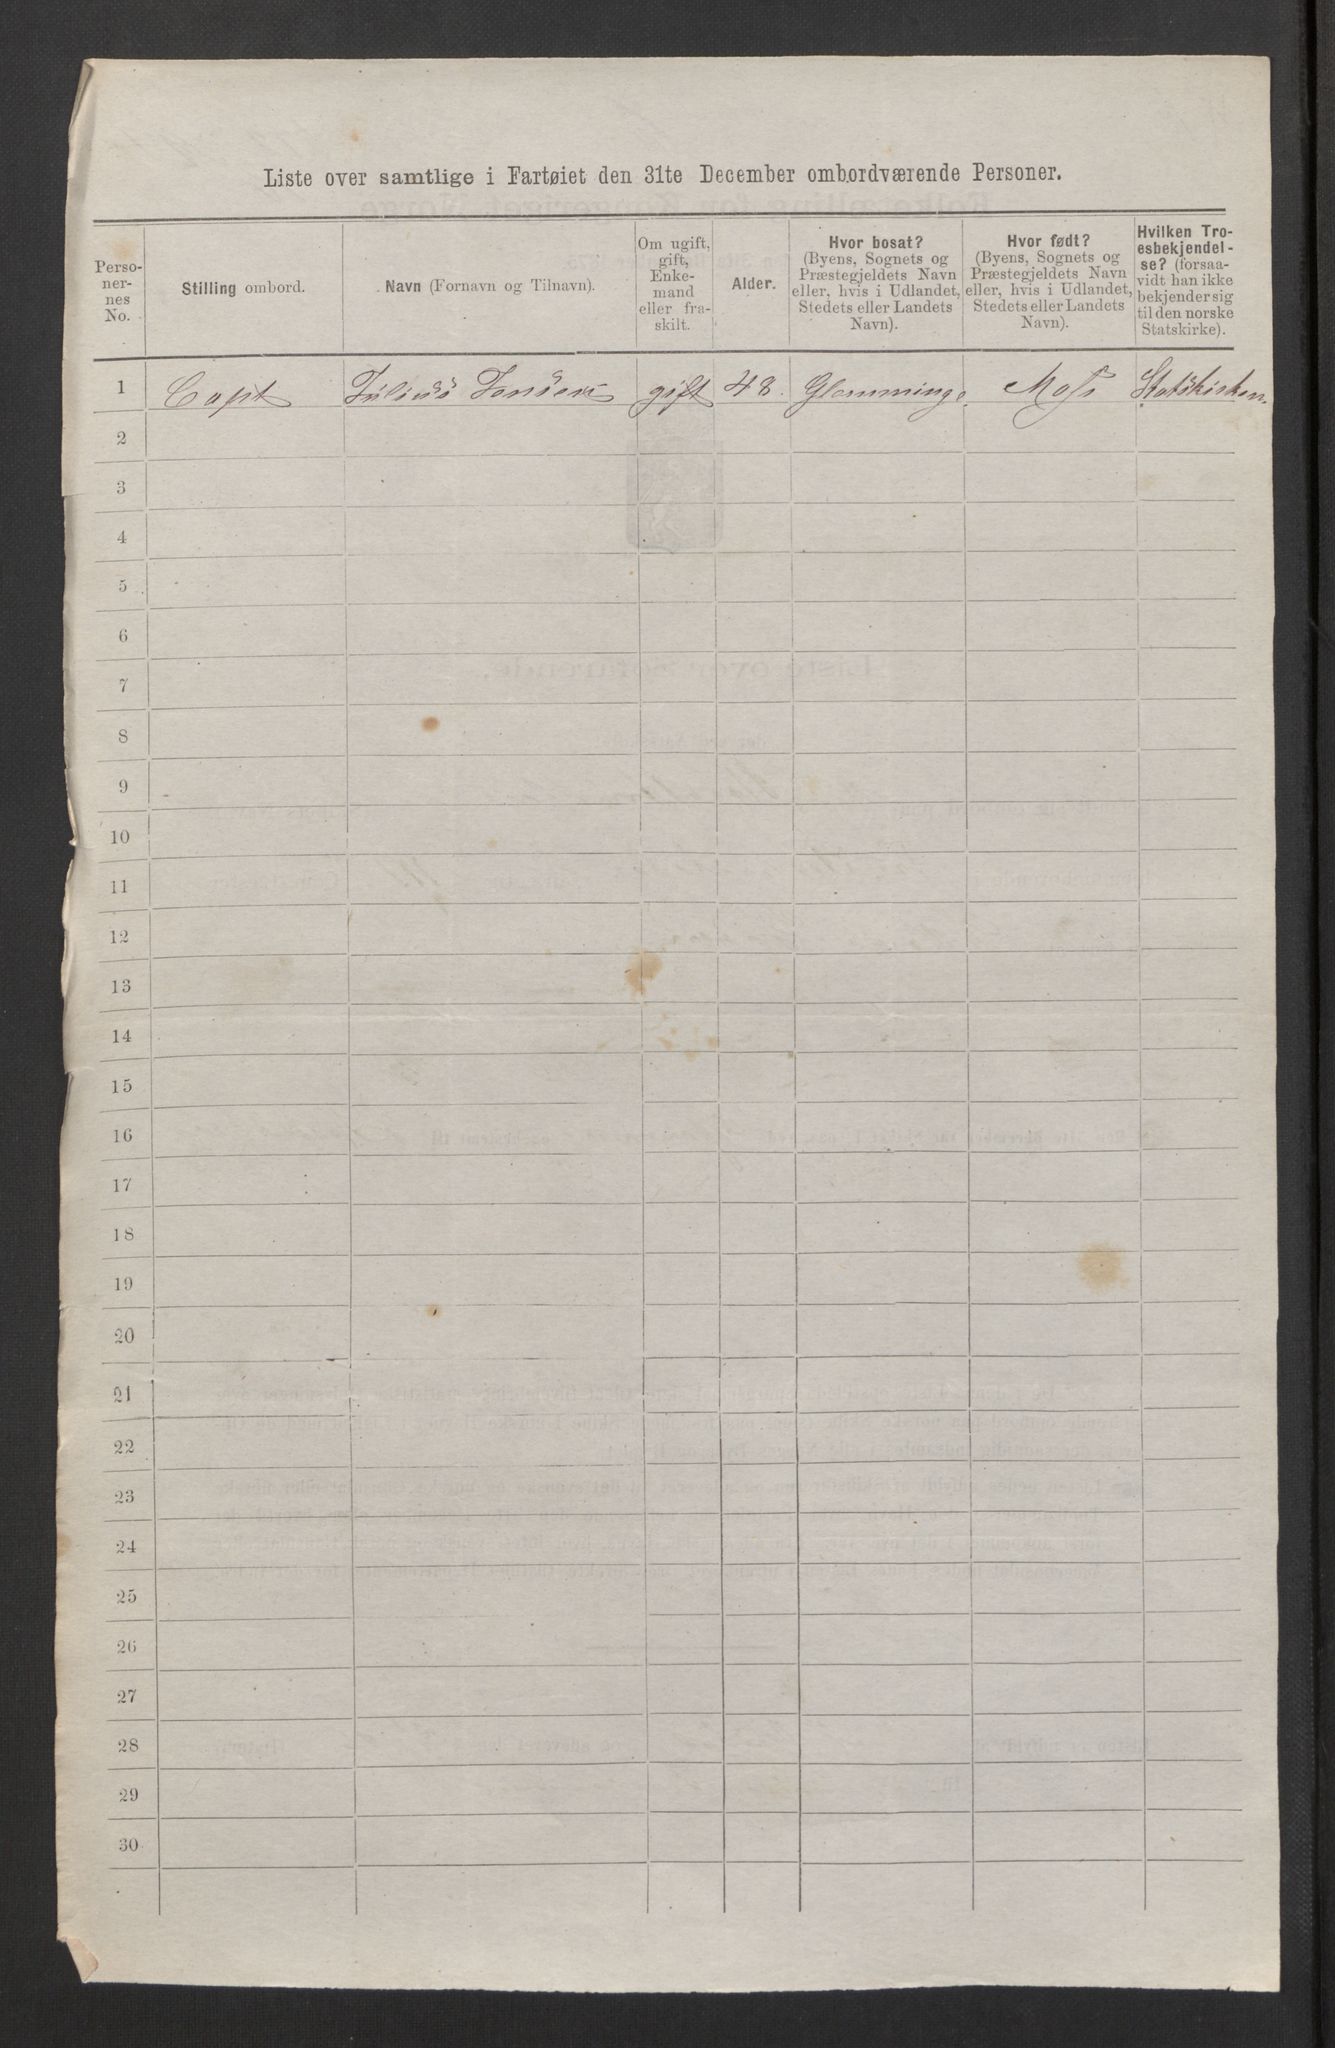 Liste over samtlige i Fartøiet den 31te December ombordværende Personer.
Perso-
ner-
nes
No.
Stilling ombord.
Navn (Fornavn og Tilnavn).
Om ugift,
gift,
Enke-
mand
eller fra-
skilt.
Alder.
Hvor bosat?
(Byens, Sognets og
Præstegjeldets Navn
eller, hvis i Udlandet,
Stedets eller Landets
Navn).
Hvor født?
(Byens, Sognets og
Præstegjeldets Navn
eller, hvis i Udlandet,
Stedets eller Landets
Navn).
Hvilken Tro-
esbekjendel-
se? (forsaa-
vidt han ikke
bekjender sig
til den norske
Statskirke).
1 Capt Julius Jensen gift 48. Glemminge Moss Statskirken
2
3
4
5
6
7
8
9
10
11
12
13
14
15
16
17
18
19
20
21
22
23
24
25
26
27
28
29
30